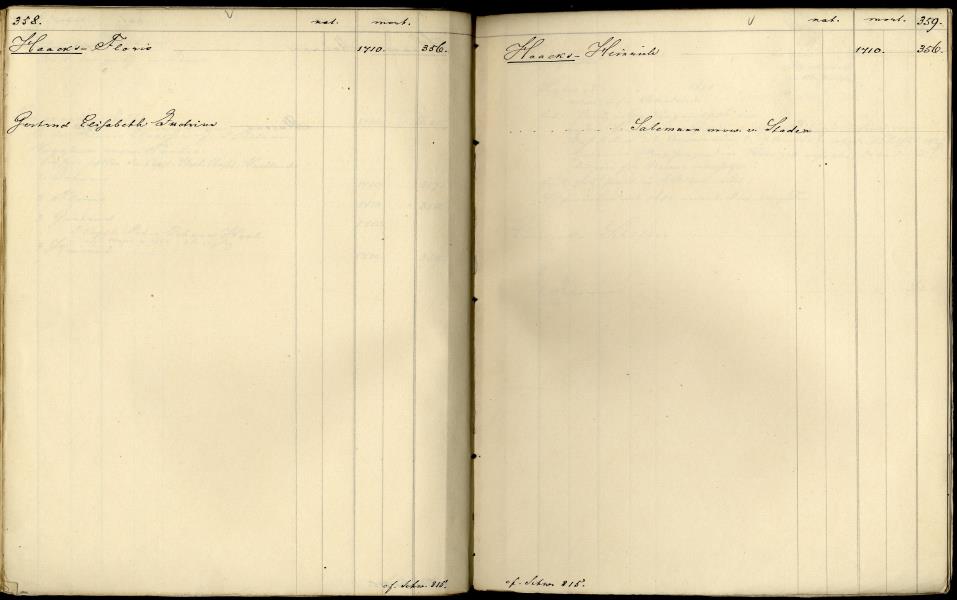 358. nat. mort.
Haacks - Floris 1710. 356.
Gertrud Elisabeth
cf. Schw. 815.
nat. mort. 359.
Haacks - Heinrich 1710. 356.
. . . . . . . Salemann mow. v. Staden
cf. Schw. 815.